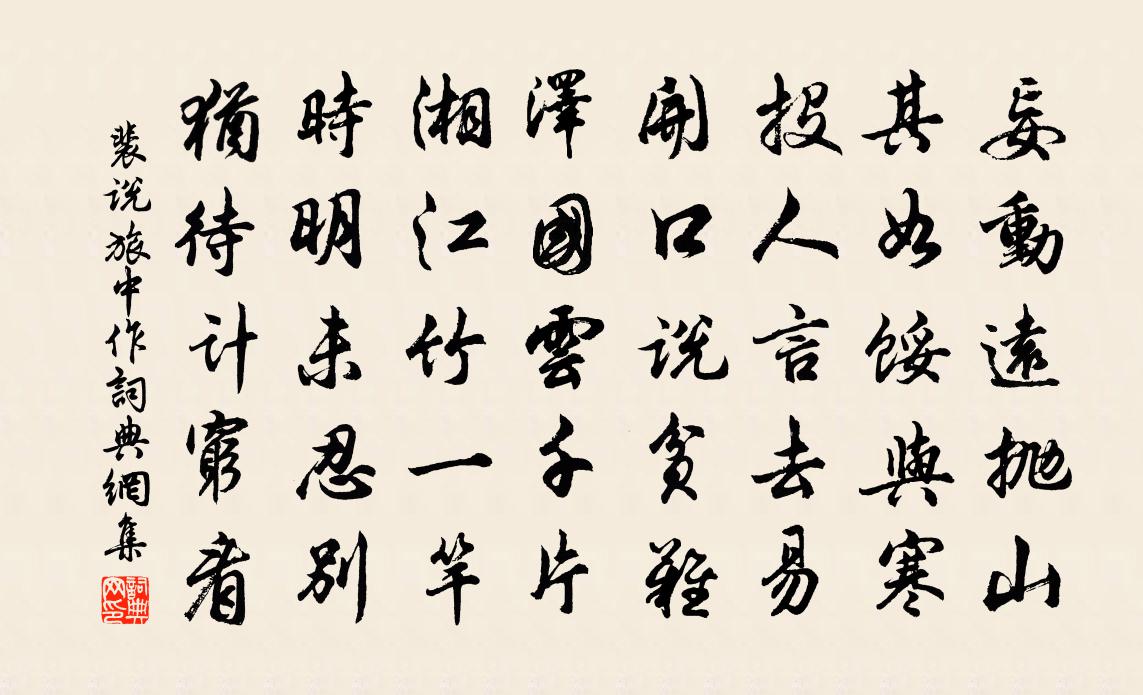 妄動遠拋山
其如餒與寒
投人言去易
開口說貧難
澤國雲千片
湘江竹一竿
時明未忍別
猶待計窮看
裴說旅中作詞典網集
詞典網印